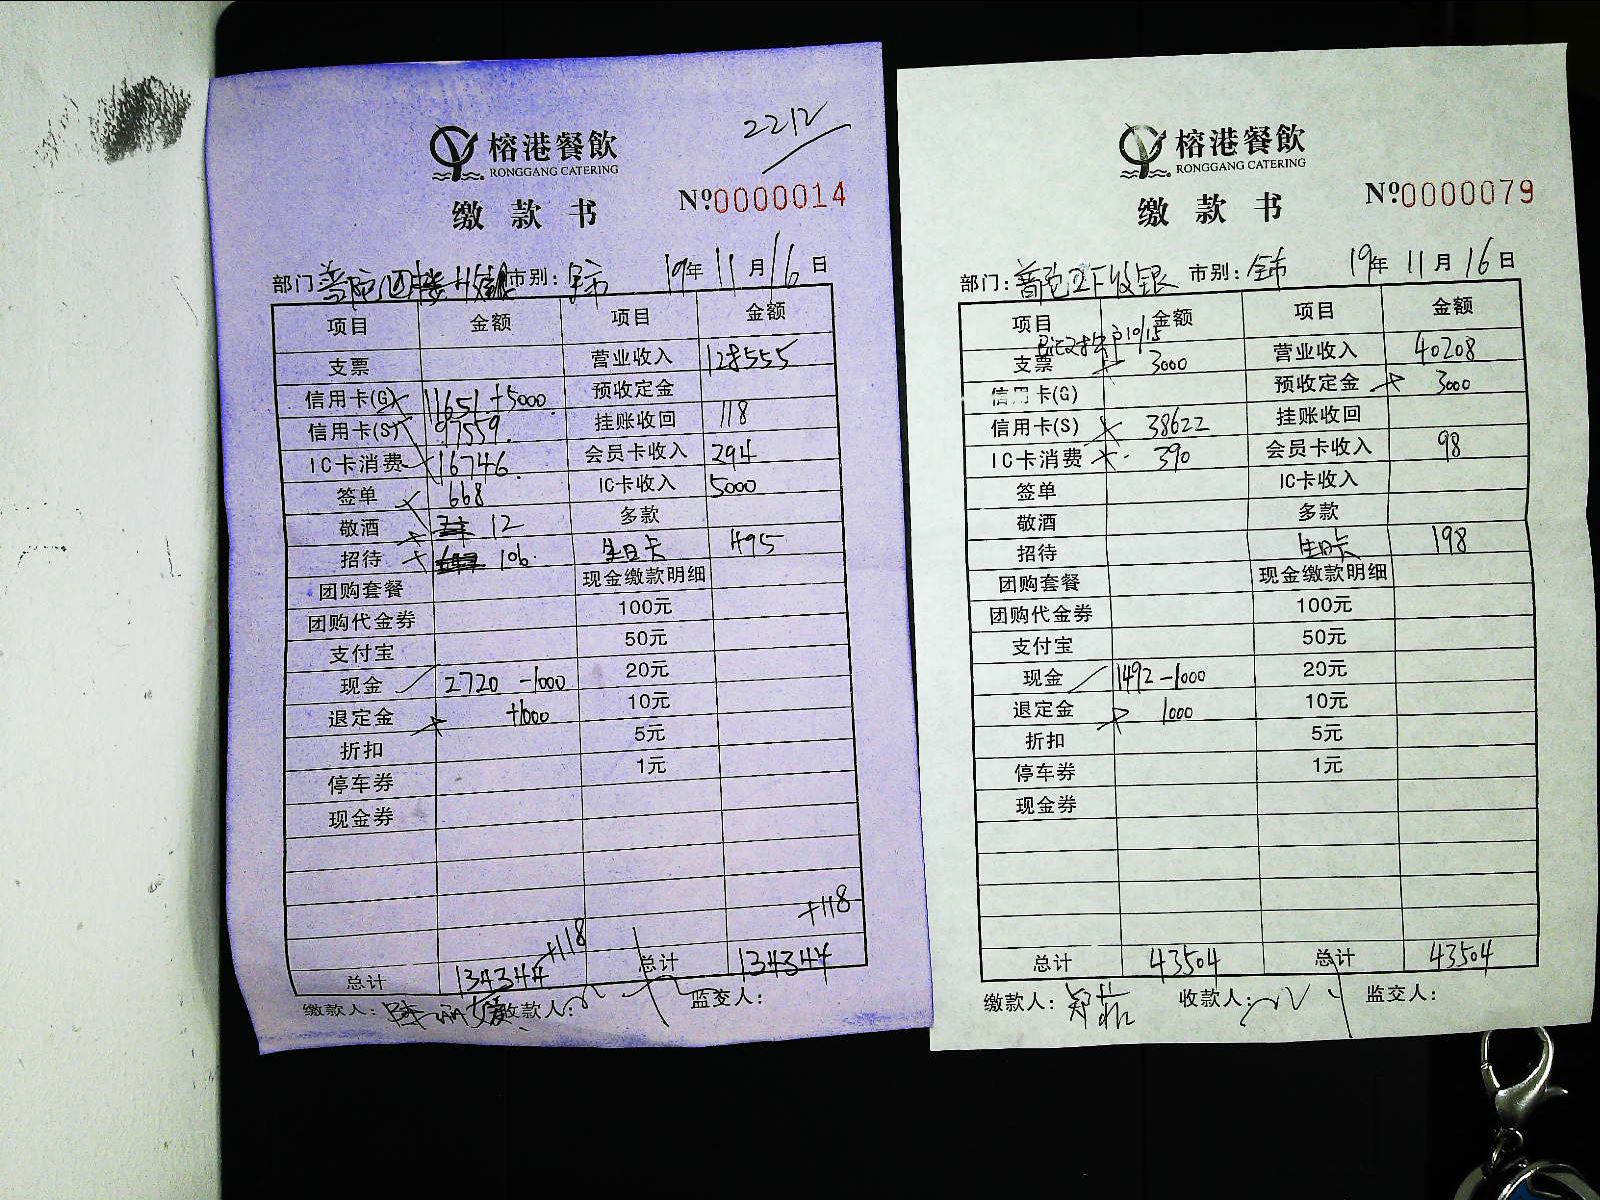 2212
榕港餐飲
RONGGANG CATERING
缴款书
Nº0000014
部门 普陀四楼收银 市别: 全市 19年 11月 16日
项目 金额 项目 金额
支票 营业收入 128555
信用卡(G) 11651 +5000 预收定金
信用卡(S) 97559 挂账收回 118
IC卡消费 16746 会员卡收入 294
签单 668 IC卡收入 5000
敬酒 12 多款
招待 106 生日卡 495
团购套餐 现金缴款明细
团购代金券 100元
支付宝 50元
现金 2720 -1000 20元
退定金 +1000 10元
折扣 5元
停车券 1元
现金券
+118 +118
总计 134344 总计 134344
缴款人: 收款人: 监交人:
榕港餐飲
RONGGANG CATERING
缴款书
Nº0000079
部门: 收银 市别: 全市 19年 11月 16日
项目 金额 项目 金额
10/15
支票 3000 营业收入 40208
信用卡(G) 预收定金 3000
信用卡(S) 38622 挂账收回
IC卡消费 390 会员卡收入 98
签单 IC卡收入
敬酒 多款
招待 生日卡 198
团购套餐 现金缴款明细
团购代金券 100元
支付宝 50元
现金 1492-1000 20元
退定金 1000 10元
折扣 5元
停车券 1元
现金券
总计 43504 总计 43504
缴款人: 收款人: 监交人: